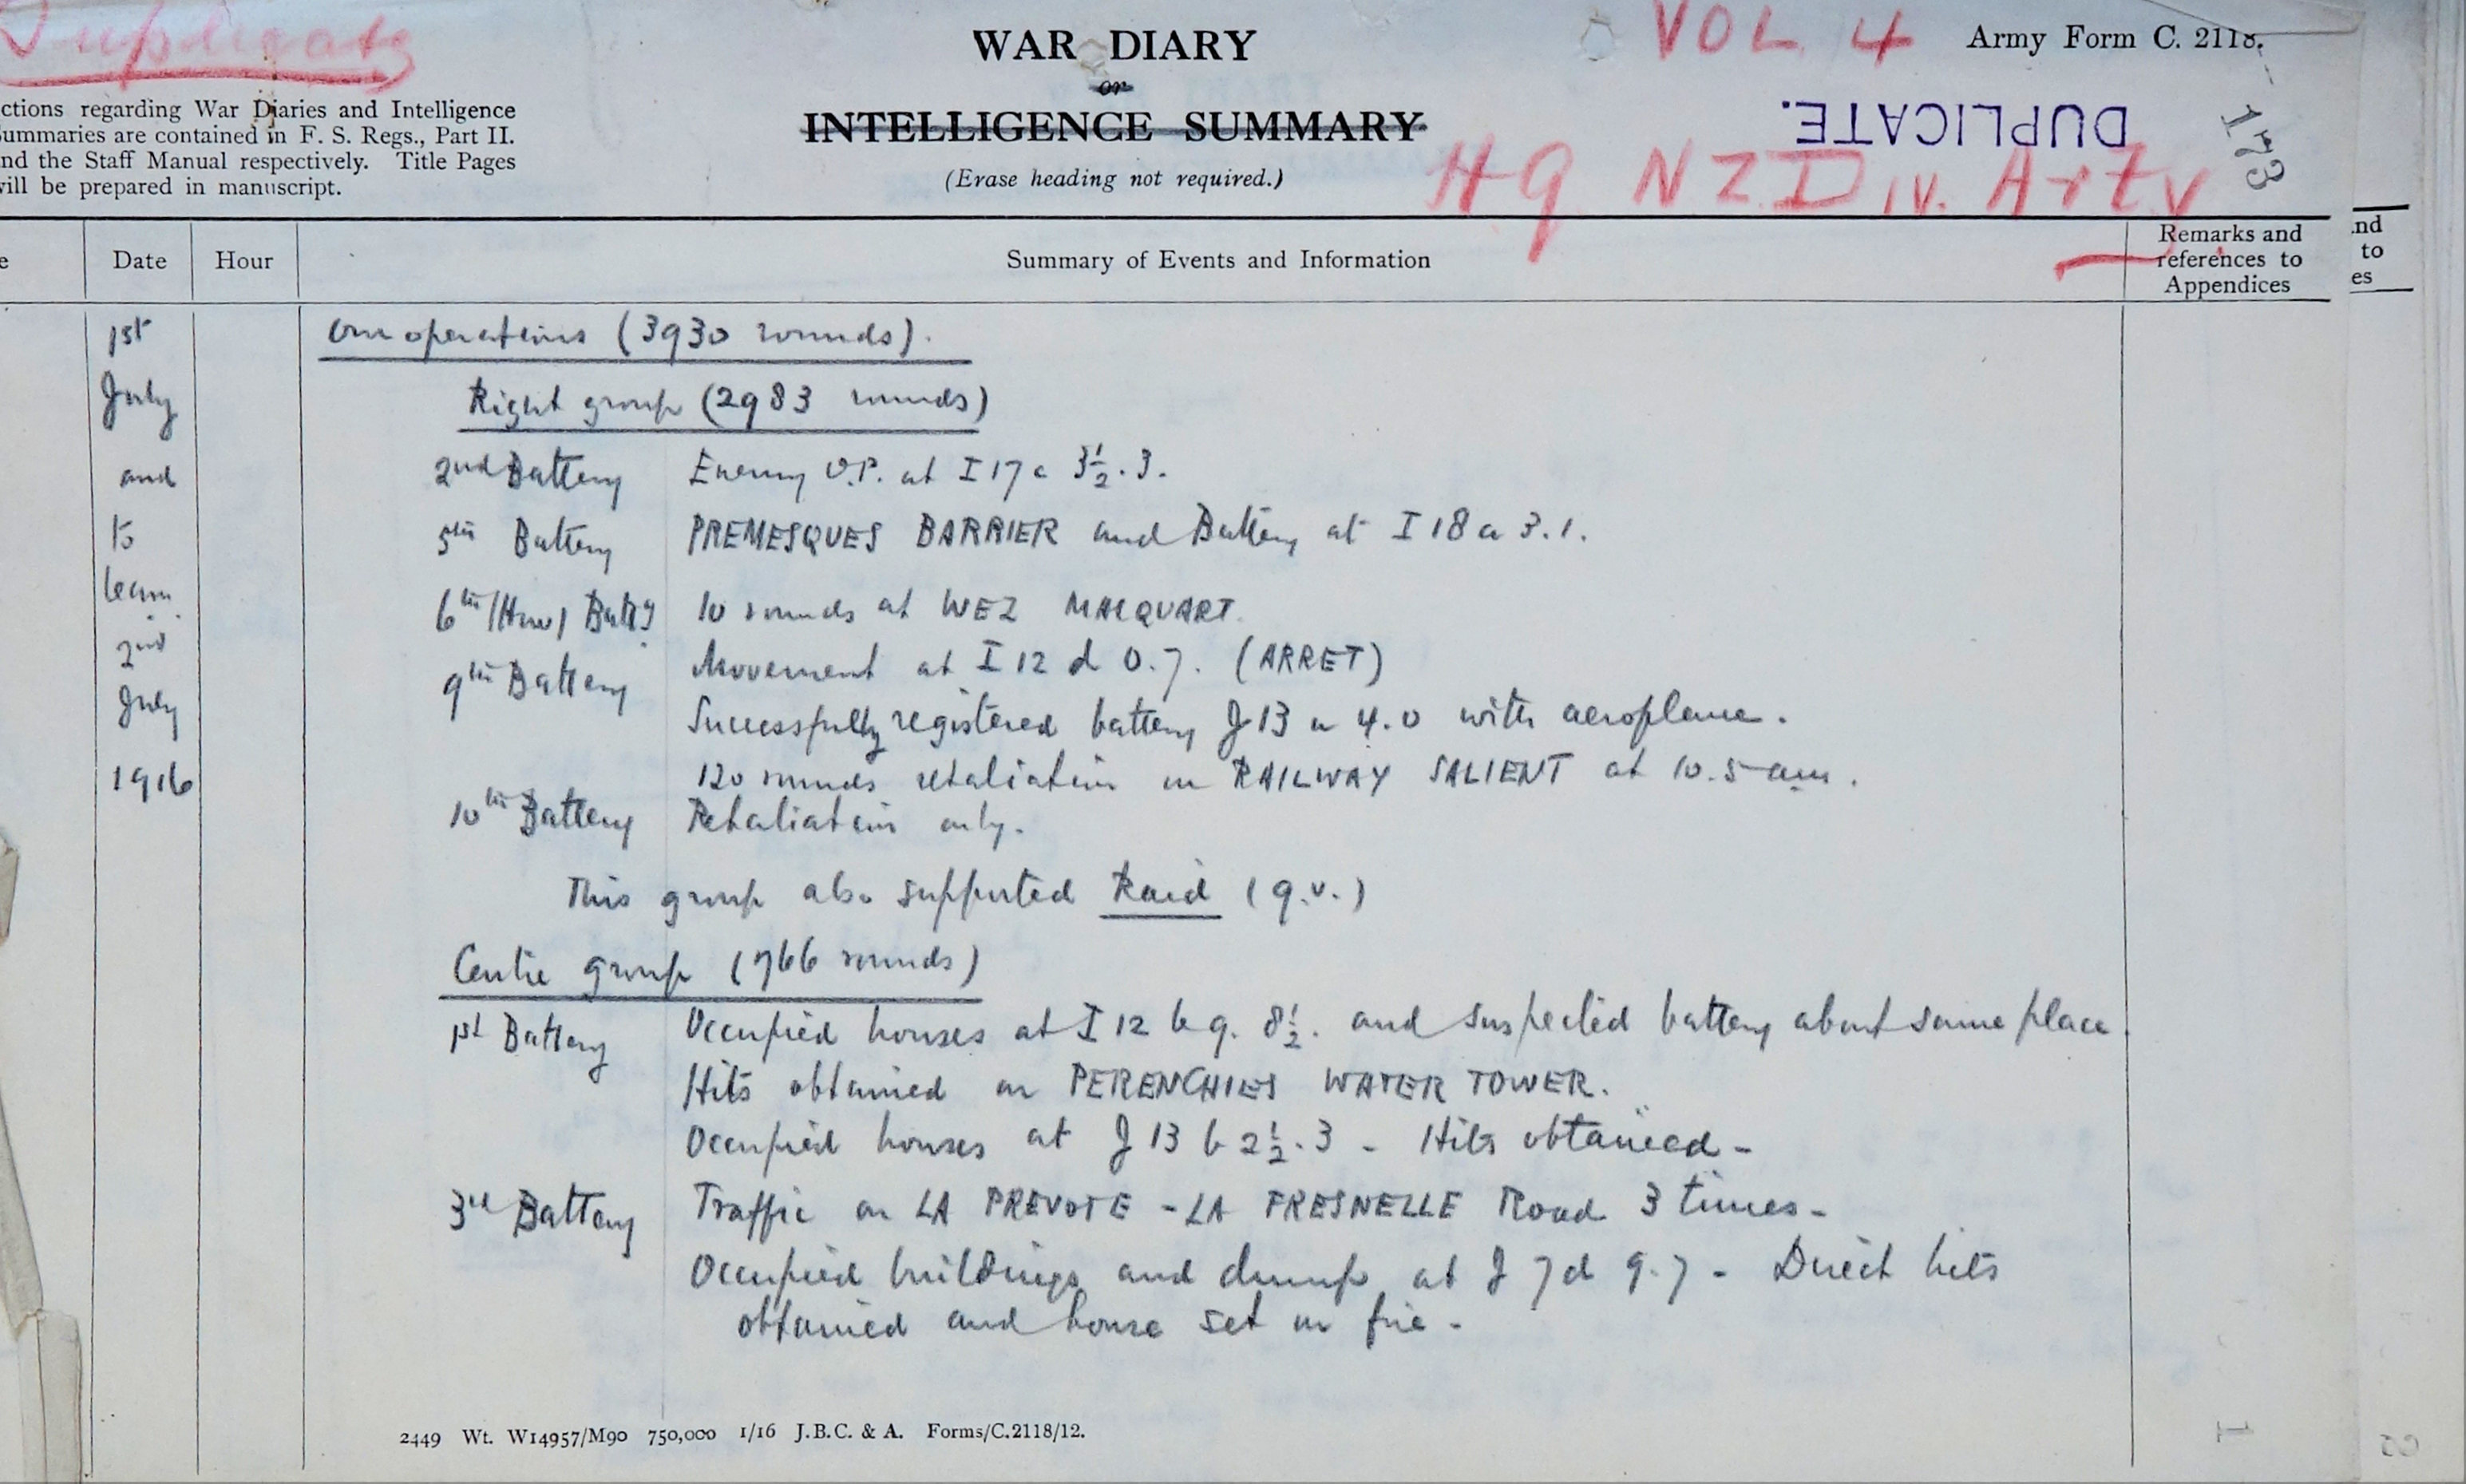 Duplicate
WAR DIARY
or
INTELLIGENCE SUMMARY
(Erase heading not required.)
VOL 4
Army Form C. 2118.
DUPLICATE.
173
HQ NZ Div. Arty
ctions regarding War Diaries and Intelligence
ummaries are contained in F. S. Regs., Part II.
nd the Staff Manual respectively. Title Pages
will be prepared in manuscript.
e Date Hour Summary of Events and Information Remarks and references to Appendices
nd
to
es
1st
July
and
to
2nd
July
1916
Our operations (3930 rounds).
Right group (2983 rounds)
2nd Battery Enemy O.P. at I 17 c 3½.3.
5th Battery PREMESQUES BARRIER and Battery at I 18 a 3.1.
6th (How) Batty 10 rounds at WEZ MACQUART.
9th Battery Movement at I 12 d 0.7. (ARRET)
Successfully registered battery J 13 a 4.0 with aeroplane.
120 rounds retaliation on RAILWAY SALIENT at 10.5 am.
10th Battery Retaliation only.
This group also supported Raid (q.v.)
Centre group (766 rounds)
1st Battery Occupied houses at I 12 b 9. 8½. and suspected battery about same place.
Hits obtained on PERENCHIES WATER TOWER.
Occupied houses at J 13 b 2½.3 - Hits obtained -
3rd Battery Traffic on LA PREVOTE - LA FRESNELLE Road 3 times -
Occupied buildings and dump at J 7d 9.7 - Direct hits
obtained and house set on fire -
2449 Wt. W14957/M90 750,000 1/16 J.B.C. & A. Forms/C.2118/12.
1